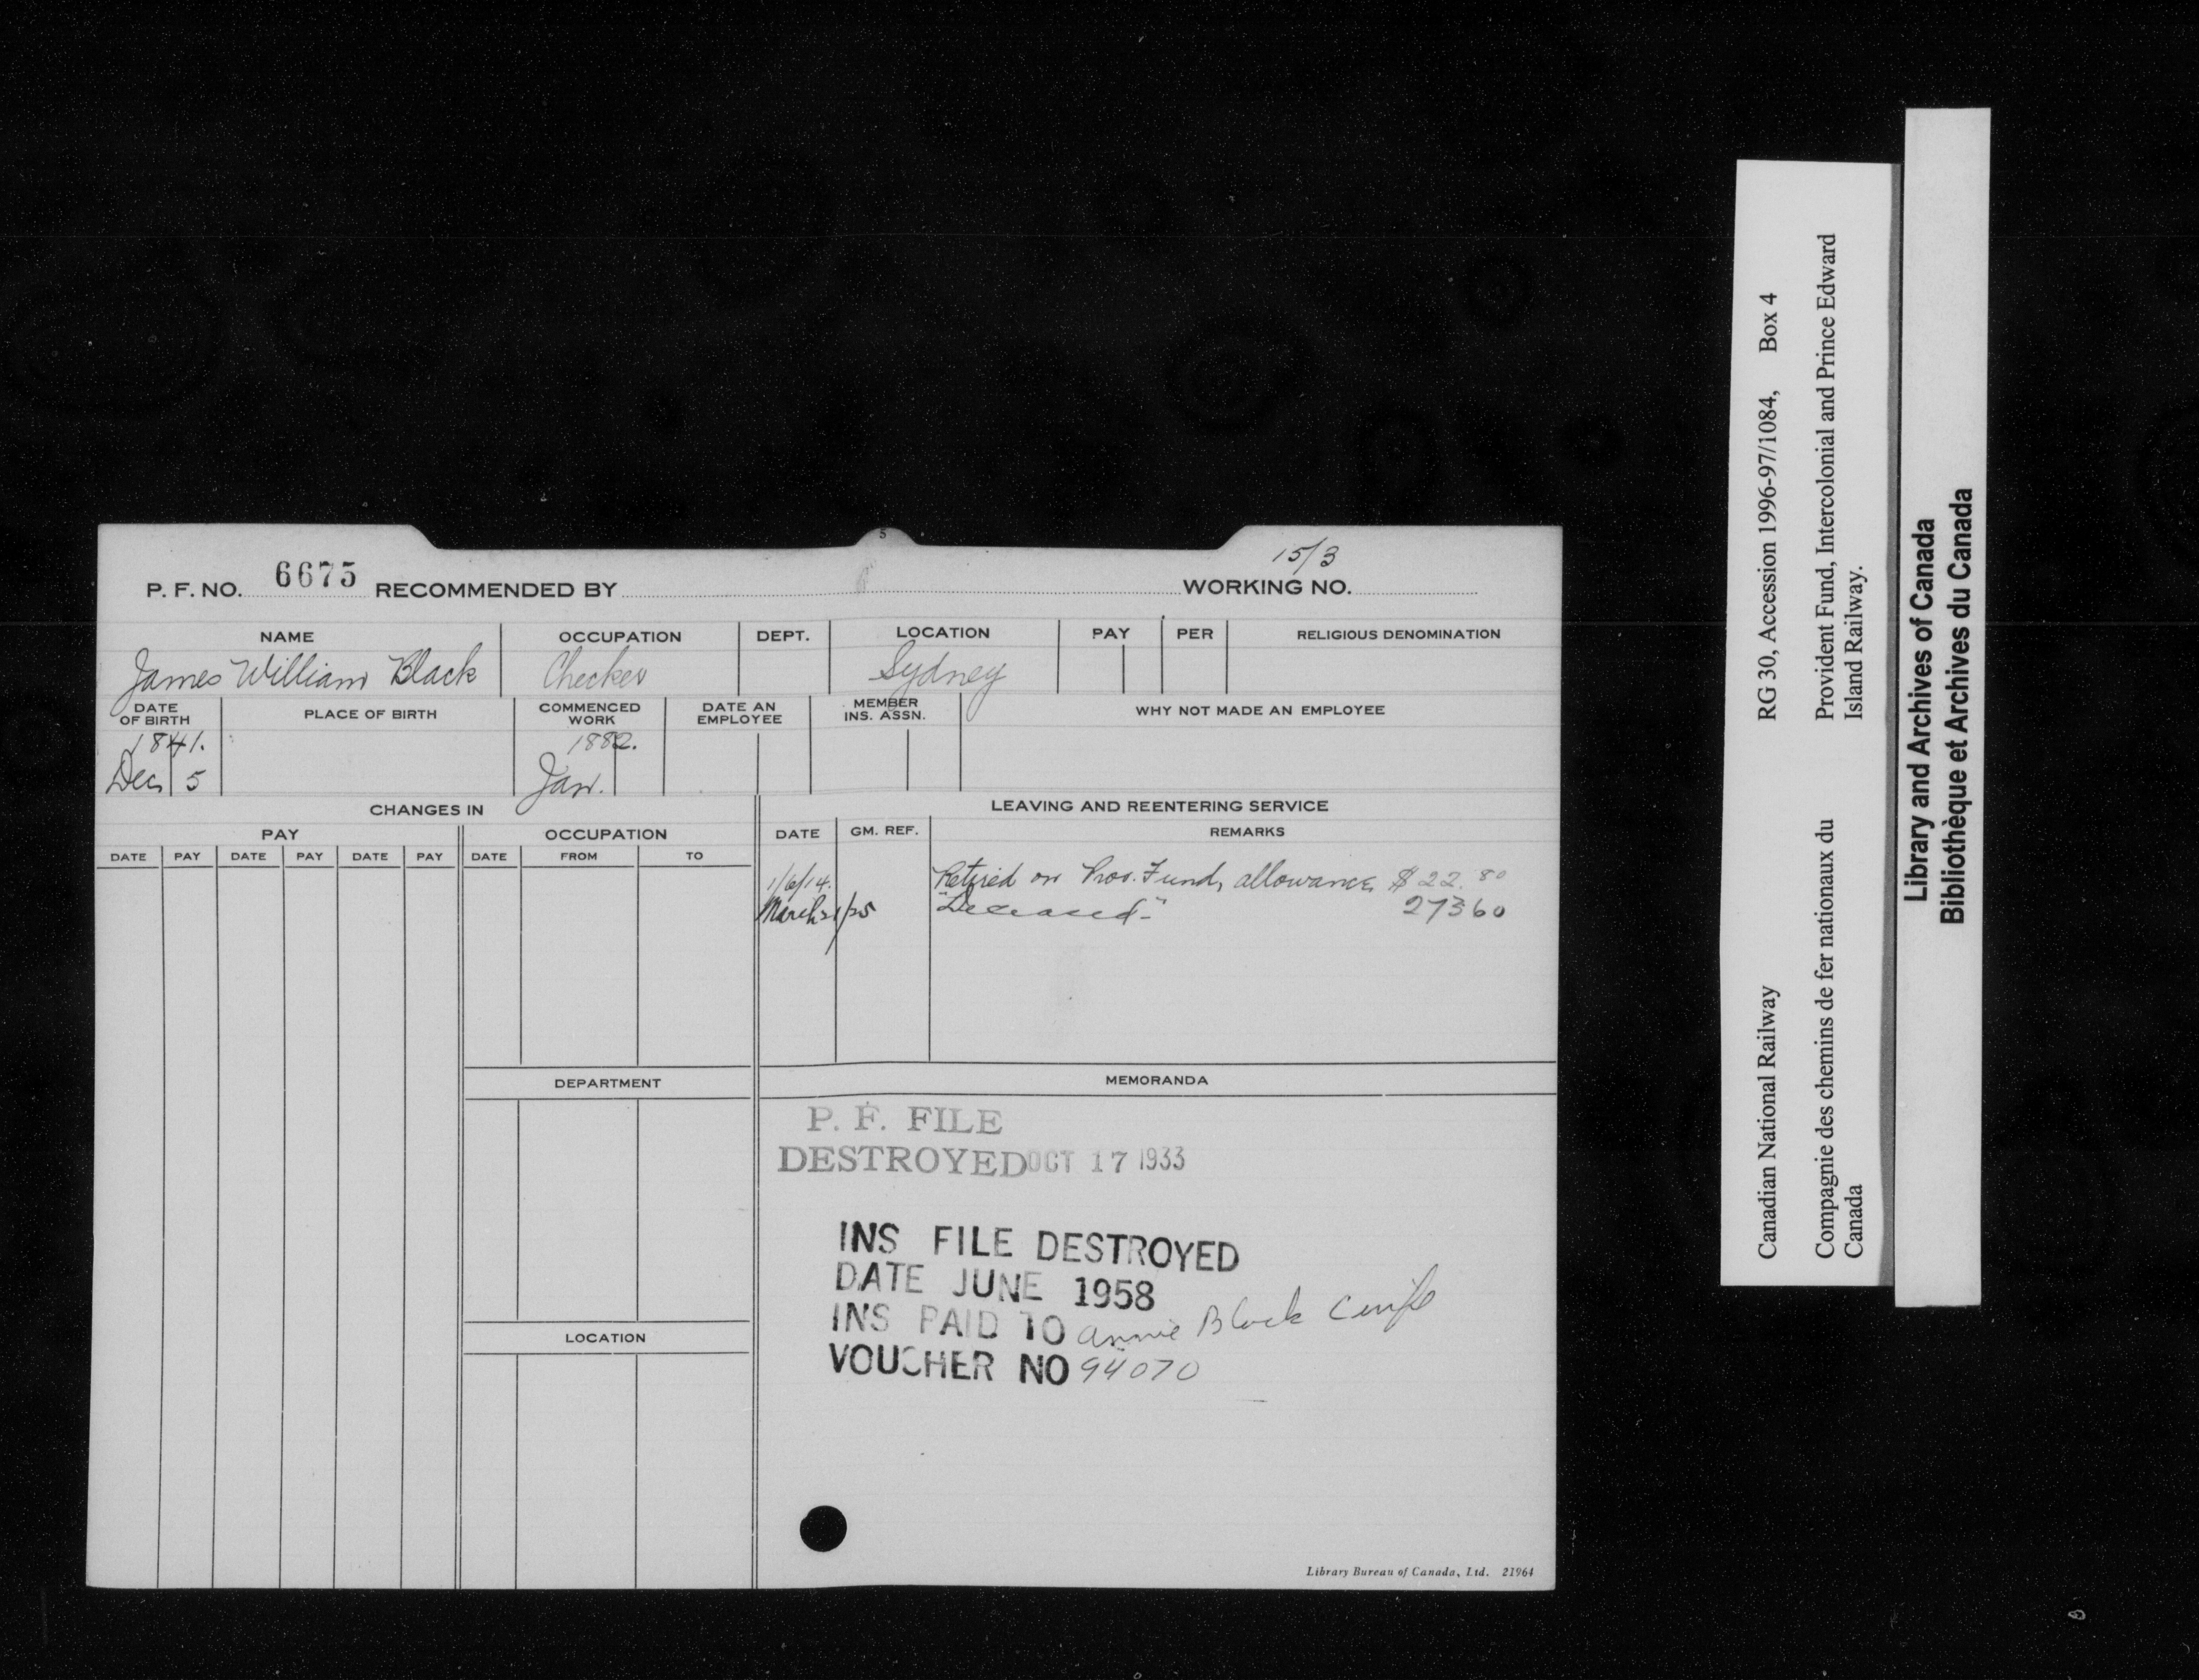 5
15/3
P. F. NO. 6675 RECOMMENDED BY WORKING NO.
NAME OCCUPATION DEPT. LOCATION PAY PER RELIGIOUS DENOMINATION
James William Black Checker Sydney
DATE OF BIRTH PLACE OF BIRTH COMMENCED WORK DATE AN EMPLOYEE MEMBER INS. ASSN. WHY NOT MADE AN EMPLOYEE
1841. 1882.
Dec 5 Jan.
CHANGES IN LEAVING AND REENTERING SERVICE
PAY OCCUPATION DATE GM. REF. REMARKS
DATE PAY DATE PAY DATE PAY DATE FROM TO
1/6/14. Retired on Prov. Fund, allowance $22.80
March 21/25 "Deceased-" 27360
DEPARTMENT MEMORANDA
P. F. FILE
DESTROYED OCT 17 1933
INS FILE DESTROYED
DATE JUNE 1958
INS PAID TO Annie Black
VOUCHER NO 94070
LOCATION
Library Bureau of Canada, Ltd. 21964
Canadian National Railway RG 30, Accession 1996-97/1084, Box 4
Compagnie des chemins de fer nationaux du
Canada
Provident Fund, Intercolonial and Prince Edward
Island Railway.
Library and Archives of Canada
Bibliothèque et Archives du Canada